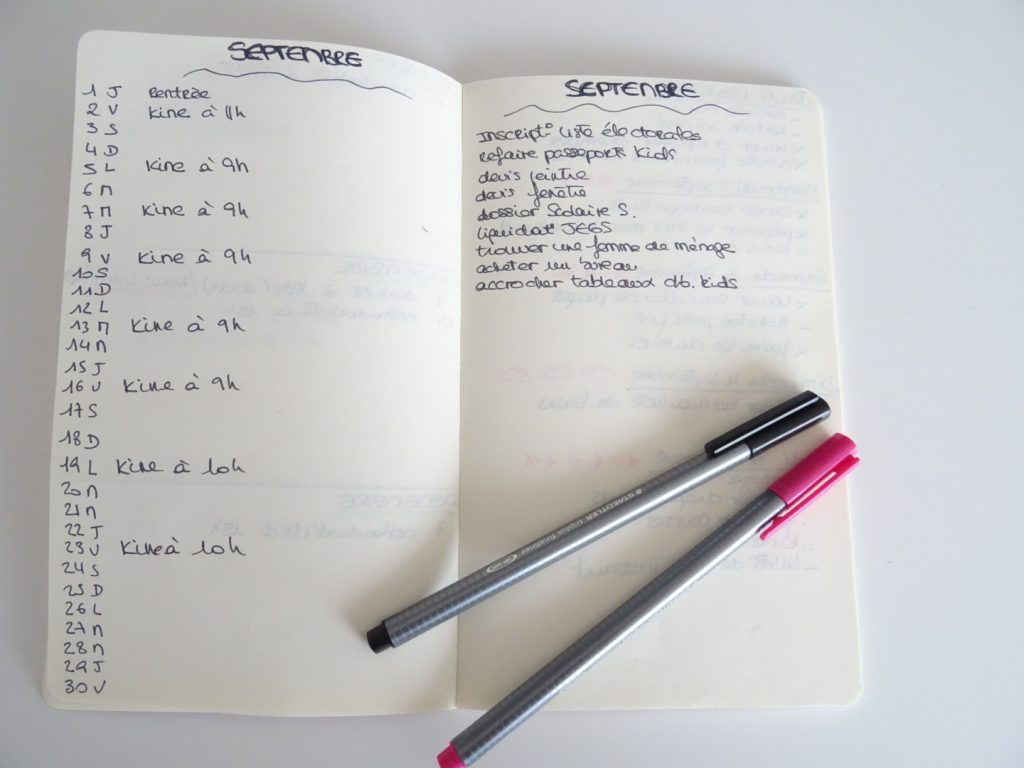 SEPTEMBRE
1 J Rentrée
2 V Kine à 11h
3 S
4 D
5 L Kine à 9h
6 M
7 M Kine à 9h
8 J
9 V Kine à 9h
10 S
11 D
12 L
13 M Kine à 9h
14 M
15 J
16 V Kine à 9h
17 S
18 D
19 L Kine à 10h
20 M
21 M
22 J
23 V Kine à 10h
24 S
25 D
26 L
27 M
28 M
29 J
30 V
SEPTEMBRE
Inscript° liste électorales
Refaire passeports Kids
devis peintre
devis fenêtre
dossier Scolaire S.
liquidat° JEGS
trouver une femme de ménage
acheter un
accrocher tableaux ch. kids
STAEDTLER triplus fineliner